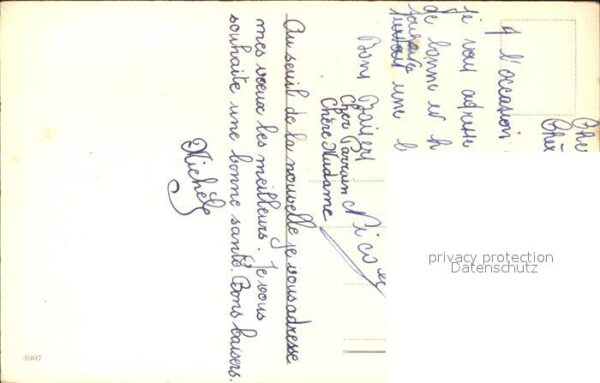 Cher Parrain
Chère Madame
Au seuil de la nouvelle je vous adresse
mes voeux les meilleurs. Je vous
souhaite une bonne santé. Bons baisers.
Michèle
A l'occasion
Je vous adresse
de bonne et h
surtout une b
Bons Baisers
Nicole
privacy protection
Datenschutz
3907